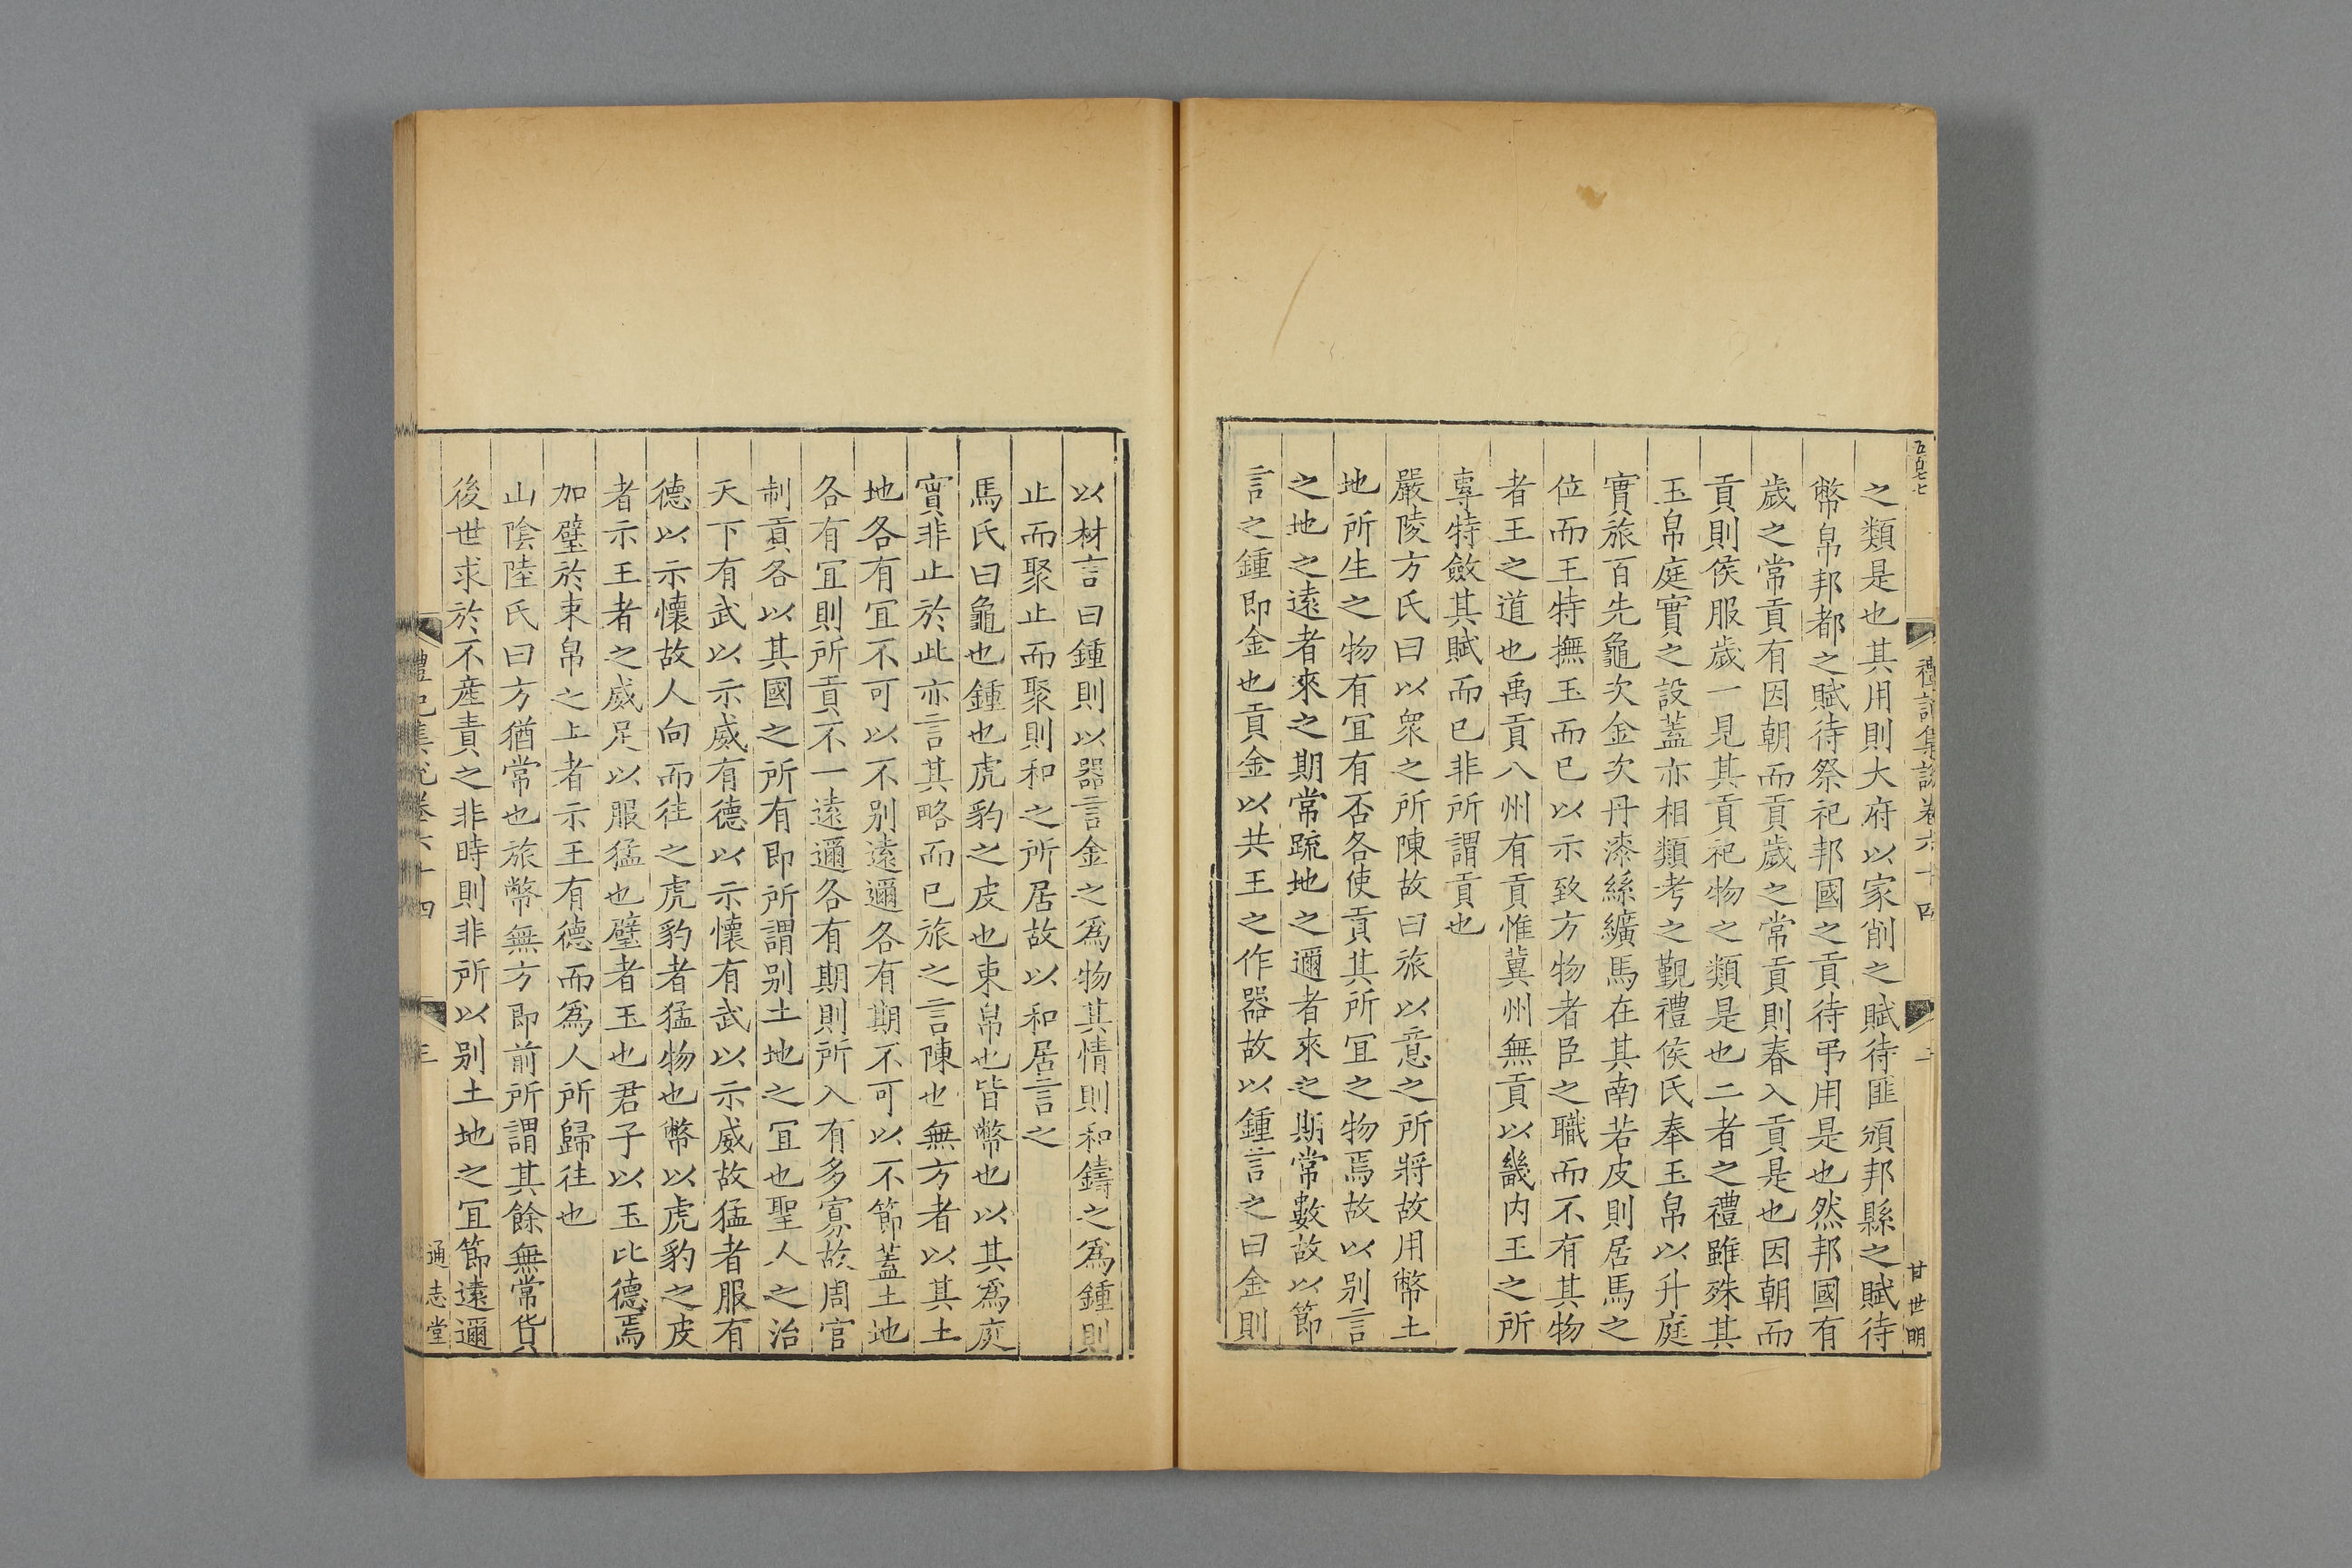 五百七七
禮記集說卷六十四
二
甘世明
之類是也其用則大府以家削之賦待匪頒邦縣之賦待
幣帛邦都之賦待祭祀邦國之貢待弔用是也然邦國有
歲之常貢有因朝而貢歲之常貢則春入貢是也因朝而
貢則侯服歲一見其貢祀物之類是也二者之禮雖殊其
玉帛庭實之設蓋亦相類考之覲禮侯氏奉玉帛以升庭
實旅百先龜次金次丹漆絲纊馬在其南若皮則居馬之
位而王特撫玉而已以示致方物者臣之職而不有其物
者王之道也禹貢八州有貢惟冀州無貢以畿内王之所
專特斂其賦而已非所謂貢也
嚴陵方氏曰以衆之所陳故曰旅以意之所將故用幣土
地所生之物有宜有否各使貢其所宜之物焉故以别言
之地之遠者來之期常疏地之邇者來之期常數故以節
言之鍾即金也貢金以共王之作器故以鍾言之曰金則
以材言曰鍾則以器言金之爲物其情則和鑄之爲鍾則
止而聚止而聚則和之所居故以和居言之
馬氏曰龜也鍾也虎豹之皮也束帛也皆幣也以其爲庭
實非止於此亦言其略而已旅之言陳也無方者以其土
地各有宜不可以不别遠邇各有期不可以不節蓋土地
各有宜則所貢不一遠邇各有期則所入有多寡故周官
制貢各以其國之所有即所謂别土地之宜也聖人之治
天下有武以示威有德以示懷有武以示威故猛者服有
德以示懷故人向而往之虎豹者猛物也幣以虎豹之皮
者示王者之威足以服猛也璧者玉也君子以玉比德焉
加璧於束帛之上者示王有德而爲人所歸往也
山陰陸氏曰方猶常也旅幣無方即前所謂其餘無常貨
後世求於不產責之非時則非所以别土地之宜節遠邇
禮記集說卷六十四
三
通志堂